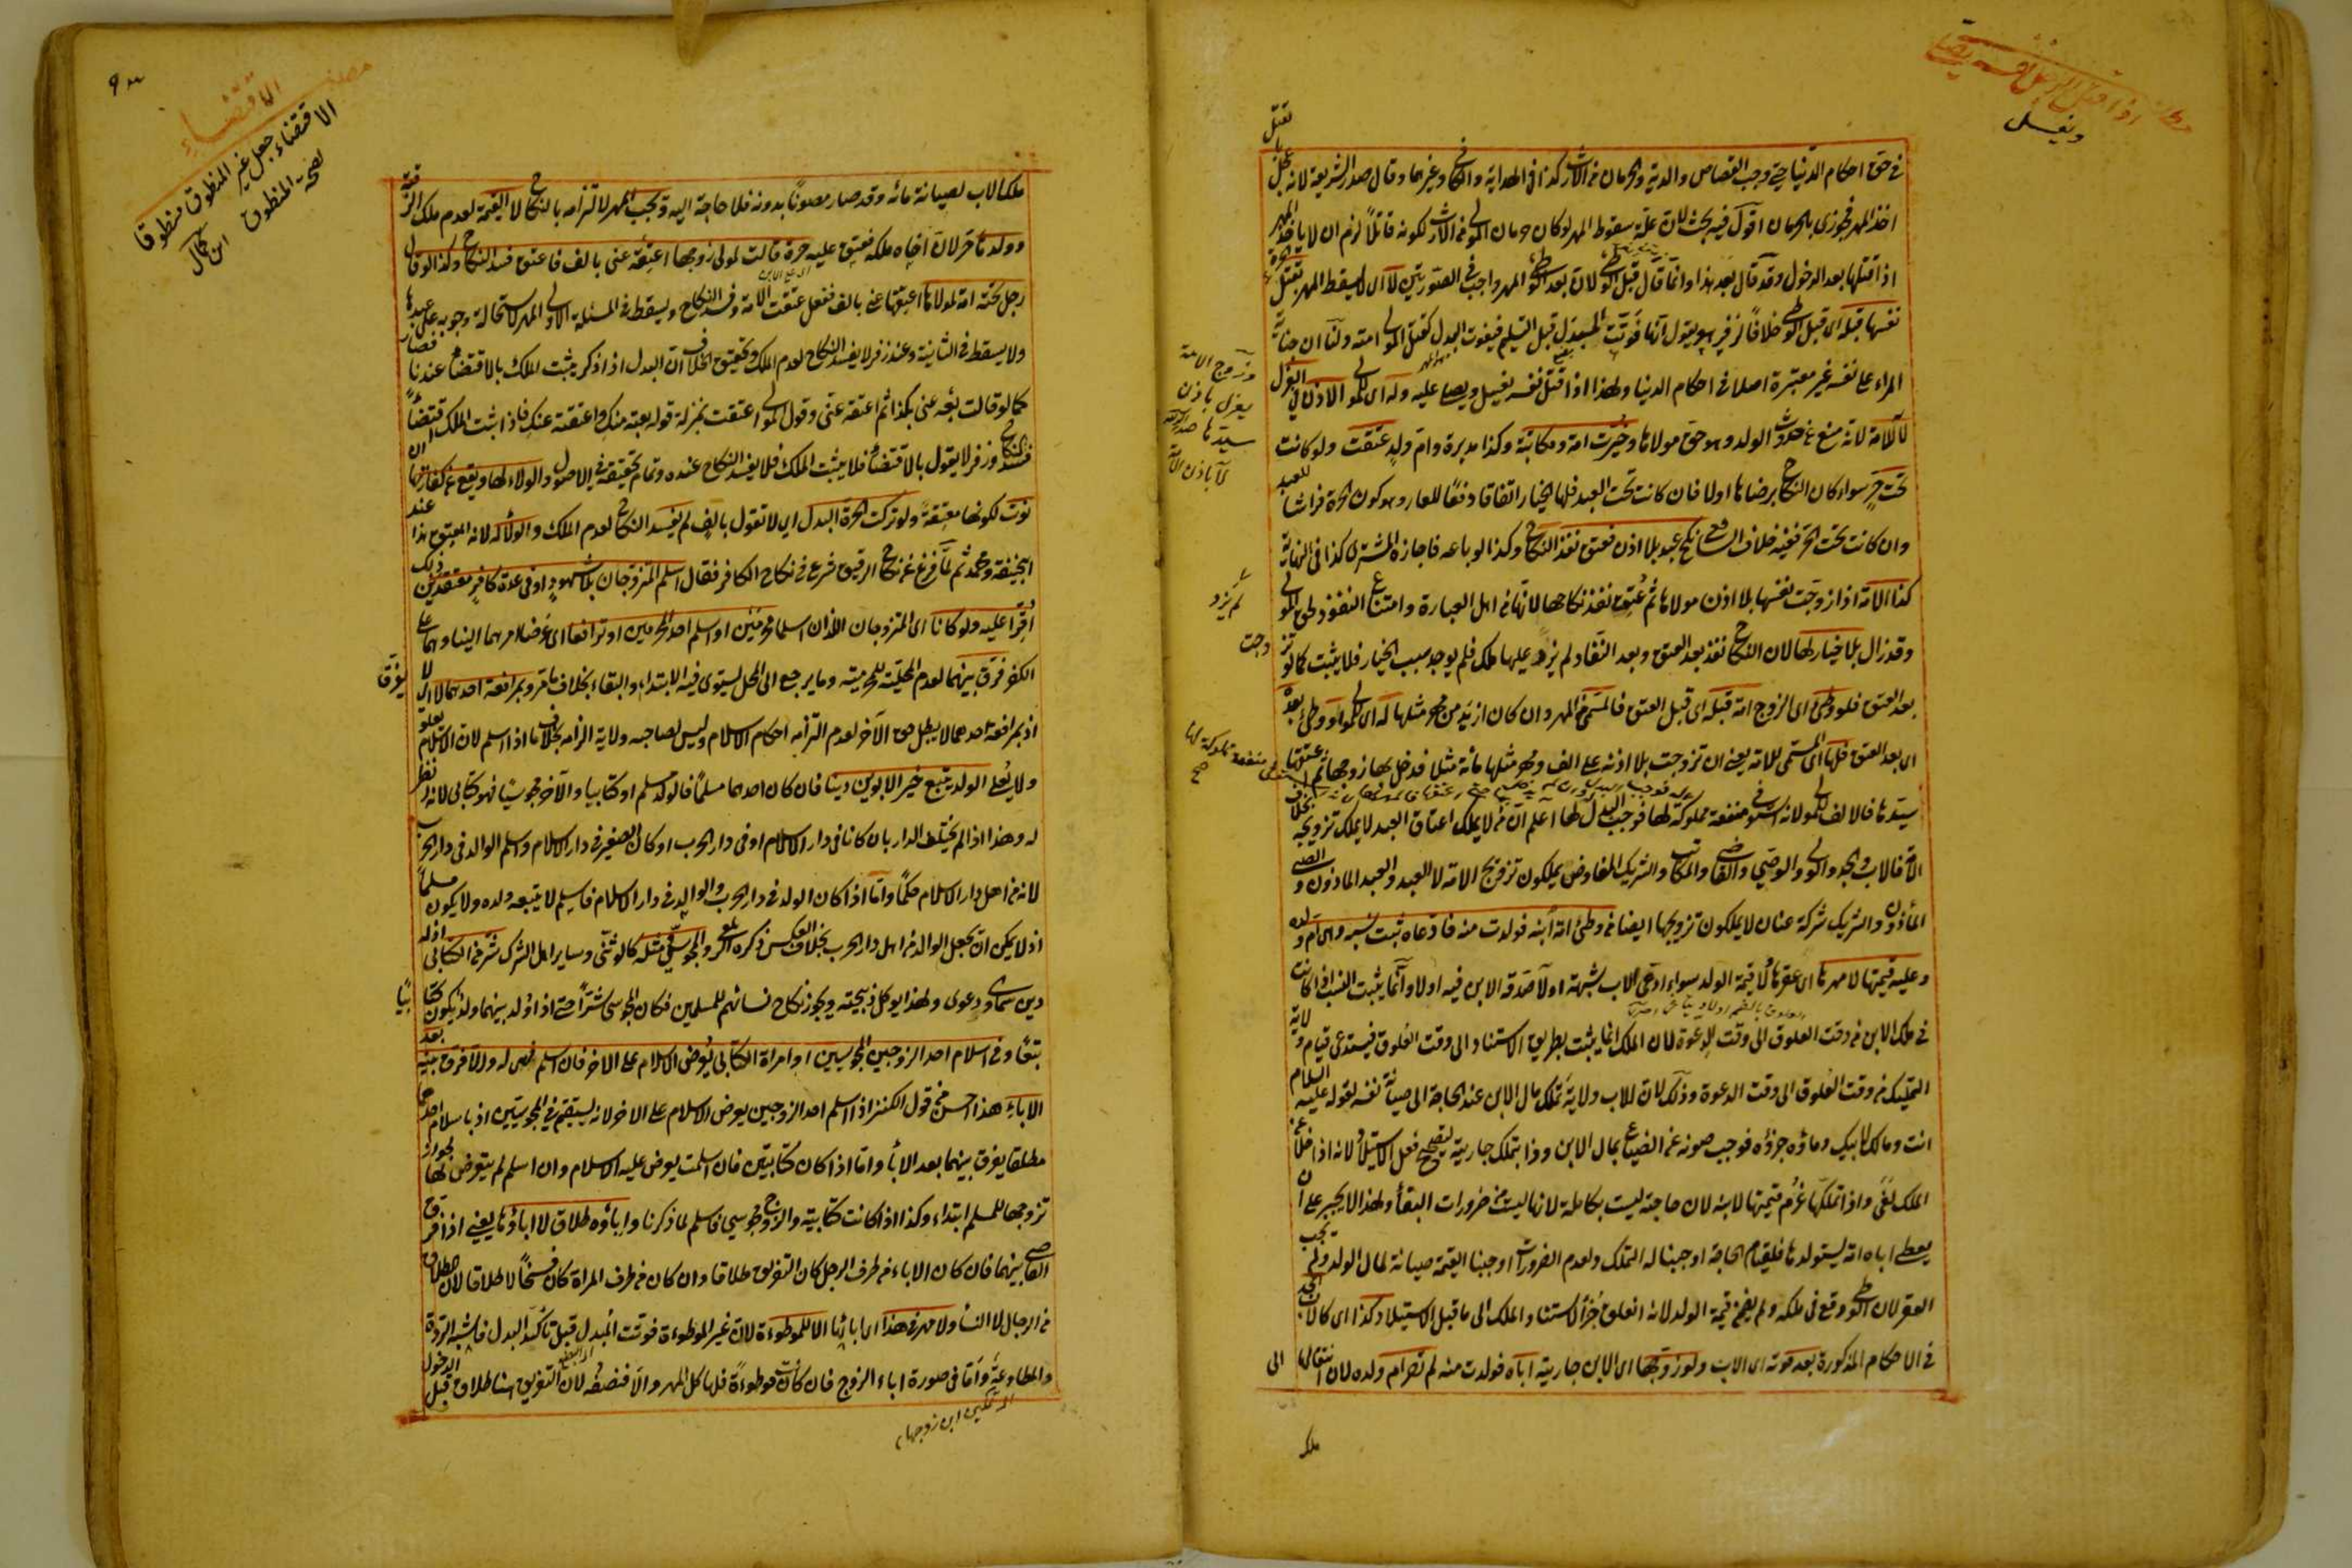 في حق احكام الدنيا حتى وجب القصاص والدية والحرمان من الارث كذا في الهداية والكافي وغيرهما وقال صدر الشريعة لانه عجل
اخذ المهر فجوزي بالحرمان اقول فيه بحث لان علة سقوط المهر لو كان حرمان المولى من الارث لكونه قاتلا لزم ان لا ياخذ المهر
اذا قتلها بعد الدخول وقد قال بعد هذا وانما قال قبل الوطئ لان بعد الوطئ المهر واجب في الصورتين لا اى لا يسقط المهر بقتل الحرة
نفسها قبله اى قبل الوطئ خلافا لزفر هو يقول انها فوتت المبدل قبل التسليم فيفوت البدل كقتل المولى امته ولنا ان جناية
المراء على نفسه غير معتبرة اصلا في احكام الدنيا ولهذا اذا قتل نفسه يغسل ويصلى عليه وله اى للمولى الاذن في العزل
لا للامة لانه منع عن حدوث الولد وهو حق مولاها وخيرت امة ومكاتبة وكذا مدبرة وام ولد عتقت ولو كانت
تحت حر سواء كان النكاح برضاها اولا فان كانت تحت العبد فلها الخيار اتفاقا دفعا للعار وهو كون الحرة فراشا للعبد
وان كانت تحت الحر ففيه خلاف الشافعي نكح عبد بلا اذن فعتق نفذ النكاح وكذا لو باعه فاجازه المشتري كذا في النهاية
كذا الامة اذا زوجت نفسها بلا اذن مولاها ثم عتق نفذ نكاحها لانها من اهل العبارة وامتناع النفوذ لحق المولى
وقد زال بلا خيار لها لان النكاح نفذ بعد العتق وبعد النفاد لم يزد عليها ملك فلم يوجد سبب الخيار فلا يثبت كما لو تزوجت
بعد العتق فلو وطئ اى الزوج امة قبله اى قبل العتق فالمسمى المهر وان كان ازيد من مهر مثلها له اى للمولى او وطئ بعده
اى بعد العتق فلها اى المسمى للامة يعنى ان تزوجت بلا اذنه على الف ومهر مثلها مائة مثلا فدخل بها زوجها ثم اعتقها
سيدها فالالف للمولى لانه استوفى منفعة مملوكة لها فوجب البدل لها اعلم ان من لا يملك اعتاق العبد لا يملك تزويجه بخلاف
الامة فالاب والجد والمولى والوصي والقاضي والمكاتب والشريك المفاوض يملكون تزويج الامة لا العبد والعبد الماذون والصبي
الماذون والشريك شركة عنان لا يملكون تزويجها ايضا من وطئ امة ابنه فولدت منه فادعاه ثبت نسبه وهى ام ولده
وعليه قيمتها لا مهرها اى عقرها ولا قيمة الولد سواء ادعى الاب شبهة اولا صدقه الابن فيه اولا وانما يثبت النسب اذا كانت
في ملك الابن من وقت العلوق الى وقت الدعوة لان الملك انما يثبت بطريق الاستناد الى وقت العلوق فيستدعى قيام ولاية
التمليك من وقت العلوق الى وقت الدعوة وذلك لان للاب ولاية تملك مال الابن عند الحاجة الى صيانة نفسه لقوله عليه السلام
انت ومالك لابيك وماؤه جزؤه فوجب صونه عن الضياع بمال الابن وذا بتملك جاريته ليصح فعل الاستيلاد لانه اذا خلا عن
الملك لغى واذا تملكها غرم قيمتها لابنه لان حاجته ليست بكاملة لانها ليست من ضرورات البقأ ولهذا لا يجبر على ان
يعطى اباه امة ليستولدها فلقيام الحاجة اوجبنا له التملك ولعدم الضرورات اوجبنا القيمة صيانة لمال الولد ولم تجب
العقر لان الوطئ وقع في ملكه ولم يضمن قيمة الولد لانه انعلق حرا لاستناد الملك الى ما قبل الاستيلاد كذا اى كالاب الجد
في الاحكام المذكورة بعد موته اى الاب ولو زوجها اى الابن جاريته اباه فولدت منه لم تصر ام ولده لان انتقالها الى
وتزوج الامة
يعزل باذن
سيدها
لا باذن الامة
ملك
ويغسل
ملك الاب لصيانة مائه وقد صار مصونا بدونه فلا حاجة اليه ويجب المهر لالتزامه بالنكاح لا القيمة لعدم ملك الرقبة
وولدها حر لان اخاه ملكه فعتق عليه حرة قالت لمولى زوجها اعتقه عنى بالف فاعتق فسد النكاح وكذا لو قال
رجل تحته امة لمولاها اعتقها عنى بالف ففعل عتقت الامة وفسد النكاح ويسقط في المسئلة الاولى المهر لاستحالة وجوبه على عبدها
ولا يسقط في الثانية وعند زفر لا يفسد النكاح لعدم الملك وتحقيق الخلاف ان البدل اذا ذكر يثبت الملك بالاقتضاء عندنا فصار
كما لو قالت بعه عنى بكذا ثم اعتقه عنى وقول المولى اعتقت بمنزلة قوله بعته منك واعتقته عنك فاذا ثبت الملك اقتضاء
فسد النكاح وزفر لا يقول بالاقتضاء فلا يثبت الملك فلا يفسد النكاح عنده وتمام تحقيقه في الاصول والولاء لها ويقع عن كفارتها ان
نوت لكونها معتقة ولو تركت الحرة البدل اى لا تقول بالف لم يفسد النكاح لعدم الملك والولاء له لانه المعتق هذا عند
ابيحنيفة ومحمد ثم لما فرغ من نكاح الرقيق شرع في نكاح الكافر فقال اسلم المتزوجان بلا شهود او في عدة كافر معتقدين ذلك
اقرا عليه ولو كانا اى المتزوجان اللذان اسلما محرمين او اسلم احد المحرمين او ترافعا اى عرضا امرهما الينا وهما على
الكفر فرق بينهما لعدم المحلية للمحرمية وما يرجع الى المحل يستوى فيه الابتداء والبقاء بخلاف ما مر وبمرافعة احدهما لا اى لا يفرق
اذ بمرافعة احدهما لا يبطل حق الآخر لعدم التزامه احكام الاسلام وليس لصاحبه ولاية الزامه بخلاف ما اذا اسلم لان الاسلام يعلو
ولا يعلى الولد يتبع خير الابوين دينا فان كان احدهما مسلما فالولد مسلم او كتابيا والآخر مجوسيا فهو كتابى لانه انظر
له وهذا اذا لم يختلف الدار بان كانا في دار الاسلام او في دار الحرب او كان الصغير في دار الاسلام واسلم الوالد في دار الحرب
لانه من اهل دار الاسلام حكما واما اذا كان الولد في دار الحرب والوالد في دار الاسلام فاسلم لا يتبعه ولده ولا يكون مسلما
اذ لا يمكن ان يجعل الوالد من اهل دار الحرب بخلاف العكس ذكره الزيلعى والمجوسى مثله كالوثنى وساير اهل الشرك شر من الكتابى اذ له
دين سماوى دعوى ولهذا يوكل ذبيحته ويجوز نكاح نسائهم للمسلمين فكان المجوسى شرا حتى اذا ولد بينهما ولد يكون كتابيا
تبعا وفي اسلام احد الزوجين المجوسيين او امراة الكتابى يعرض الاسلام على الاخر فان اسلم فهى له والا فرق بينهما بعد
الاباء هذا احسن من قول الكنز اذا اسلم احد الزوجين يعرض الاسلام على الاخر لانه يستقيم في المجوسيين اذ باسلام احدهما
مطلقا يفرق بينهما بعد الاباء واما اذا كان كتابيتين فان اسلمت يعرض عليه الاسلام وان اسلم لم يتعرض لها لجواز
تزوجها للمسلم ابتداء وكذا اذا كانت كتابية والزوج مجوسى فاسلم لما ذكرنا واباؤه طلاق لا اباؤها يعنى اذا فرق
القاضى بينهما فان كان الاباء من طرف الرجل كان التفريق طلاقا وان كان من طرف المراة كان فسخا لا طلاقا لان الطلاق
من الرجال لا النساء ولا مهر في هذا اى ابائها الا للموطوءة لان غير الموطوءة فوتت المبدل قبل تاكد البدل فاشبه الردة
والمطاوعة واما في صورة اباء الزوج فان كانت موطوءة فلها كل المهر والا فنصفه لان التفريق هنا طلاق قبل الدخول
اى تمكين ابن زوجها
الاقتضاء
الاقتضاء جعل غير المنطوق منطوقا
لصحة المنطوق
ابن كمال